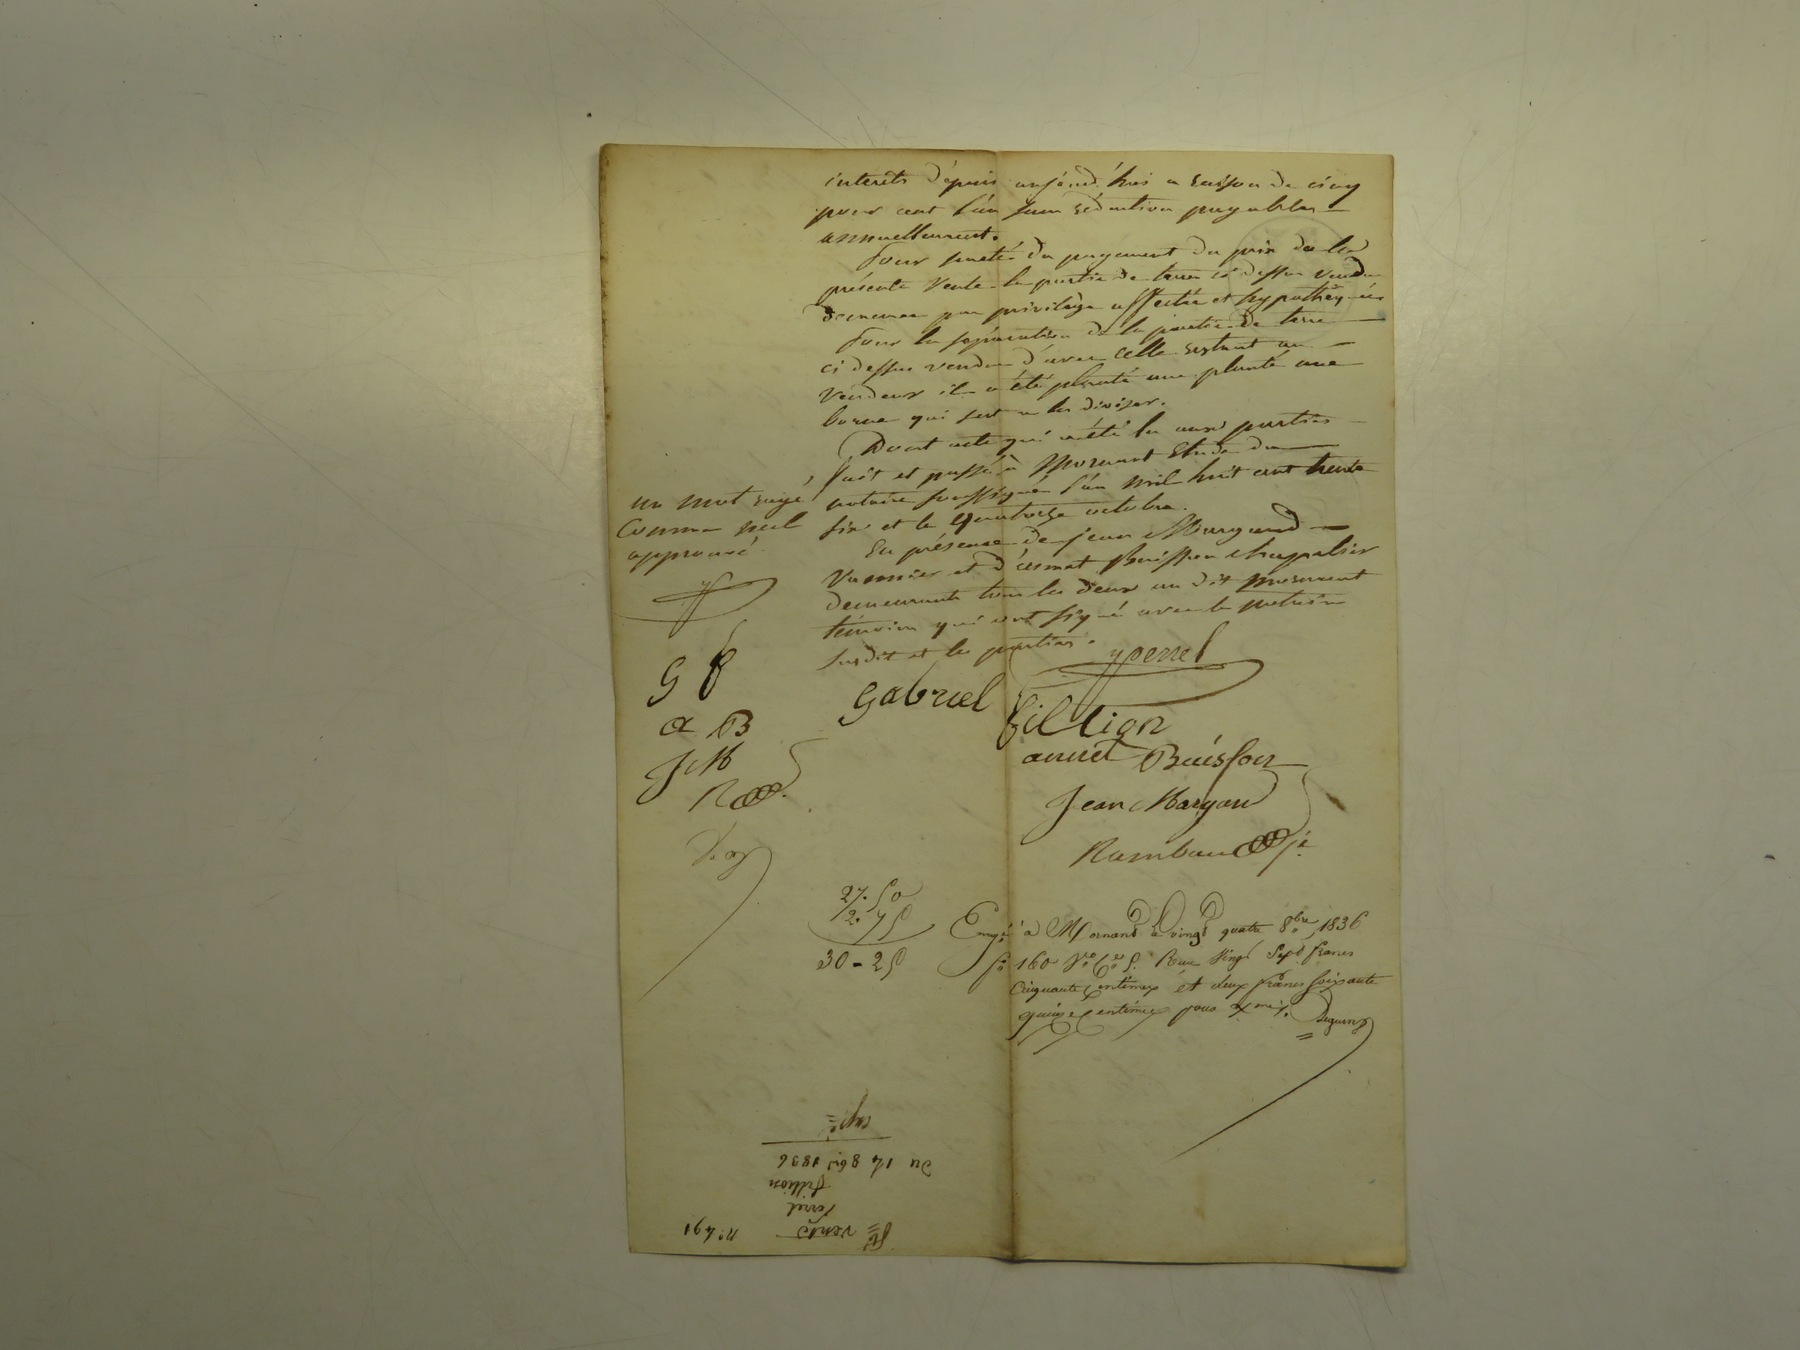 intérêts dépuis aujourd'hui a raison de cinq
pour cent l'an sans rédaction payables
annuellement.
Pour sureté du payement du prix de la
présente vente la partie de terre ci dessus vendue
demeure par privilège affectée et hypothéquée
Pour la séparation de la partie de terre
ci dessus vendue d'avec celle restant au
vendeur il a été planté une planté une
borne qui sert a les diviser.
Dont acte qui a été lu aux parties
fait et passé à Mornant Etude du
notaire soussigné l'an mil huit cent trente
six et le quatorze octobre.
En présence de jean Margand
vannier et d'annet Buisson chapelier
demeurants tous les deux au dit Mornant
témoins qui ont signé avec le notaire
susdit et les parties.
un mot rayé
comme nul
approuvé
G f
a B
J M
R
yperrel
Gabriel fillion
annet Buisson
Jean Margand
Rambaud
27. 50
2. 75
30 - 25
Enregé à Mornand le vingt quatre 8bre 1836
fo 160 Vo Ce 5. Reçu Vingt Sept francs
Cinquante Centimes et deux francs soixante
quinze Centimes pour
No 491
vente
perrel
fillion
du 14 8bre 1836